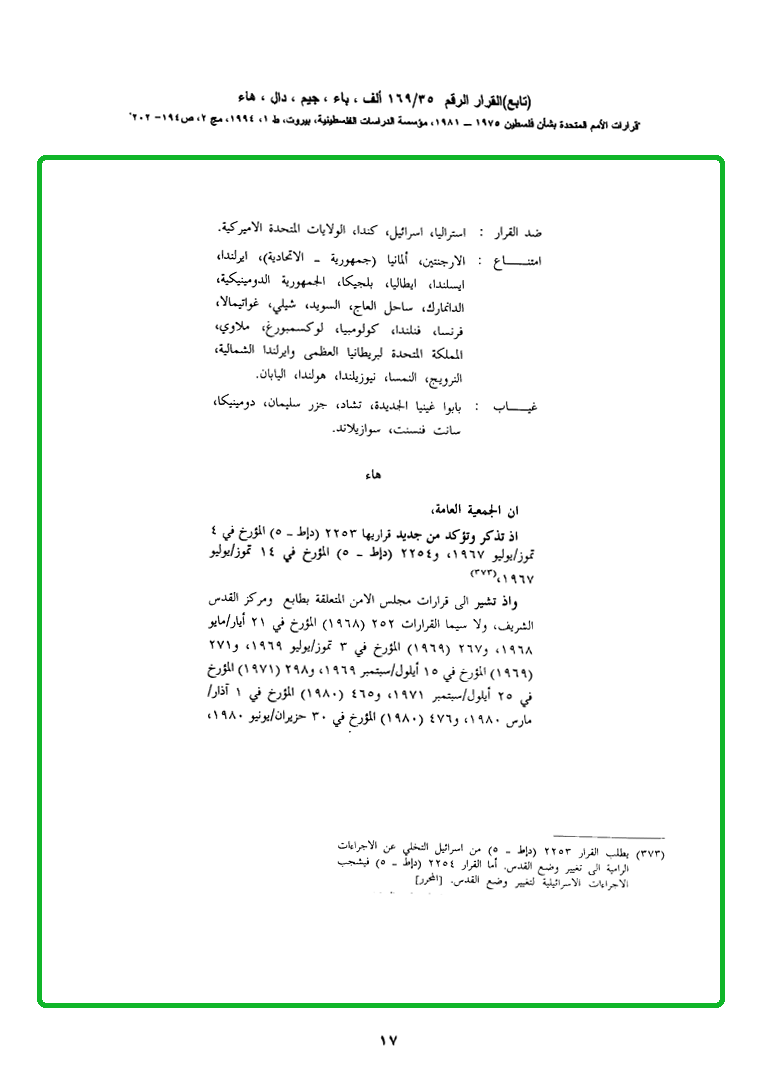 (تابع)القرار الرقم ١٦٩/٣٥ ألف ، باء ، جيم ، دال ، هاء
"قرارات الأمم المتحدة بشأن فلسطين ١٩٧٥ – ١٩٨١، مؤسسة الدراسات الفلسطينية، بيروت، ط ١، ١٩٩٤، مج ٢، ص١٩٤- ٢٠٢"
ضد القرار : استراليا، اسرائيل، كندا، الولايات المتحدة الاميركية.
امتنـــــاع : الارجنتين، ألمانيا (جمهورية – الاتحادية)، ايرلندا،
ايسلندا، ايطاليا، بلجيكا، الجمهورية الدومينيكية،
الدانمارك، ساحل العاج، السويد، شيلي، غواتيمالا،
فرنسا، فنلندا، كولومبيا، لوكسمبورغ، ملاوي،
المملكة المتحدة لبريطانيا العظمى وايرلندا الشمالية،
النرويج، النمسا، نيوزيلندا، هولندا، اليابان.
غيـــــاب : بابوا غينيا الجديدة، تشاد، جزر سليمان، دومينيكا،
سانت فنسنت، سوازيلاند.
هاء
ان الجمعية العامة،
اذ تذكر وتؤكد من جديد قراريها ٢٢٥٣ (دإط – ٥) المؤرخ في ٤
تموز/يوليو ١٩٦٧، و٢٢٥٤ (دإط – ٥) المؤرخ في ١٤ تموز/يوليو
١٩٦٧،(٣٧٣)
واذ تشير الى قرارات مجلس الامن المتعلقة بطابع ومركز القدس
الشريف، ولا سيما القرارات ٢٥٢ (١٩٦٨) المؤرخ في ٢١ أيار/مايو
١٩٦٨، و٢٦٧ (١٩٦٩) المؤرخ في ٣ تموز/يوليو ١٩٦٩، و٢٧١
(١٩٦٩) المؤرخ في ١٥ أيلول/سبتمبر ١٩٦٩، و٢٩٨ (١٩٧١) المؤرخ
في ٢٥ أيلول/سبتمبر ١٩٧١، و٤٦٥ (١٩٨٠) المؤرخ في ١ آذار/
مارس ١٩٨٠، و٤٧٦ (١٩٨٠) المؤرخ في ٣٠ حزيران/يونيو ١٩٨٠،
(٣٧٣) يطلب القرار ٢٢٥٣ (دإط – ٥) من اسرائيل التخلي عن الاجراءات
الرامية الى تغيير وضع القدس. أما القرار ٢٢٥٤ (دإط – ٥) فيشجب
الاجراءات الاسرائيلية لتغيير وضع القدس. [المحرر]
١٧